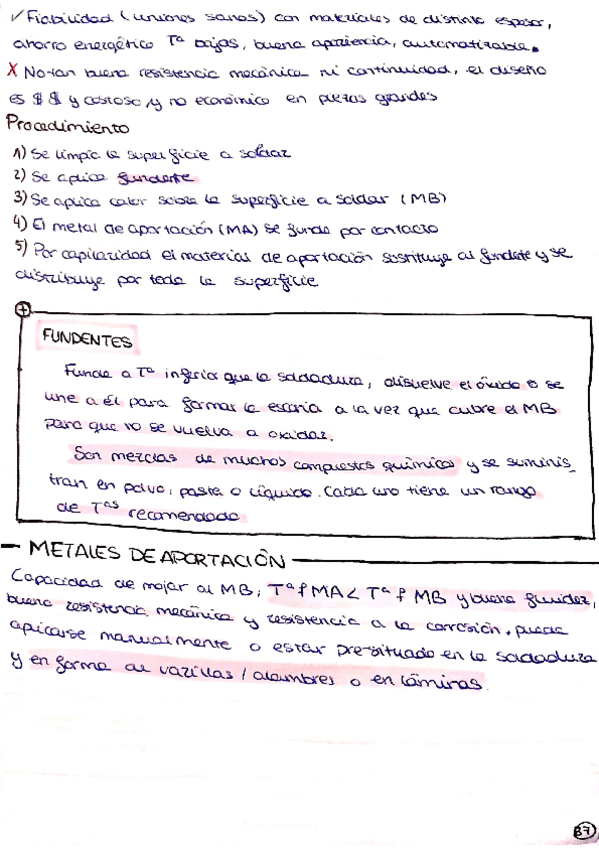 ✓ Fiabilidad (uniones sanas) con materiales de distinto espesor,
ahorro energético Tª bajas, buena apariencia, automatizable.
X No tan buena resistencia mecánica ni continuidad, el diseño
es $ $ y costoso y no económico en piezas grandes
Procedimiento
1) Se limpia la superficie a soldar
2) Se aplica fundente
3) Se aplica calor sobre la superficie a soldar (MB)
4) El metal de aportación (MA) se funde por contacto
5) Por capilaridad el material de aportación sustituye al fundete y se
distribuye por toda la superficie
+
FUNDENTES
Funde a Tª inferior que la soldadura, disuelve el óxido o se
une a él para formar la escoria a la vez que cubre el MB
para que no se vuelva a oxidar.
Son mezclas de muchos compuestos químicos y se suminis_
tran en polvo, pasta o líquido. Cada uno tiene un rango
de Tªs recomendado
- METALES DE APORTACIÓN
Capacidad de mojar al MB, Tª f MA < Tª f MB y buena fluidez,
buena resistencia mecánica y resistencia a la corrosión, puede
aplicarse manualmente o estar pre-situado en la soldadura
y en forma de varillas / alambres o en láminas.
37